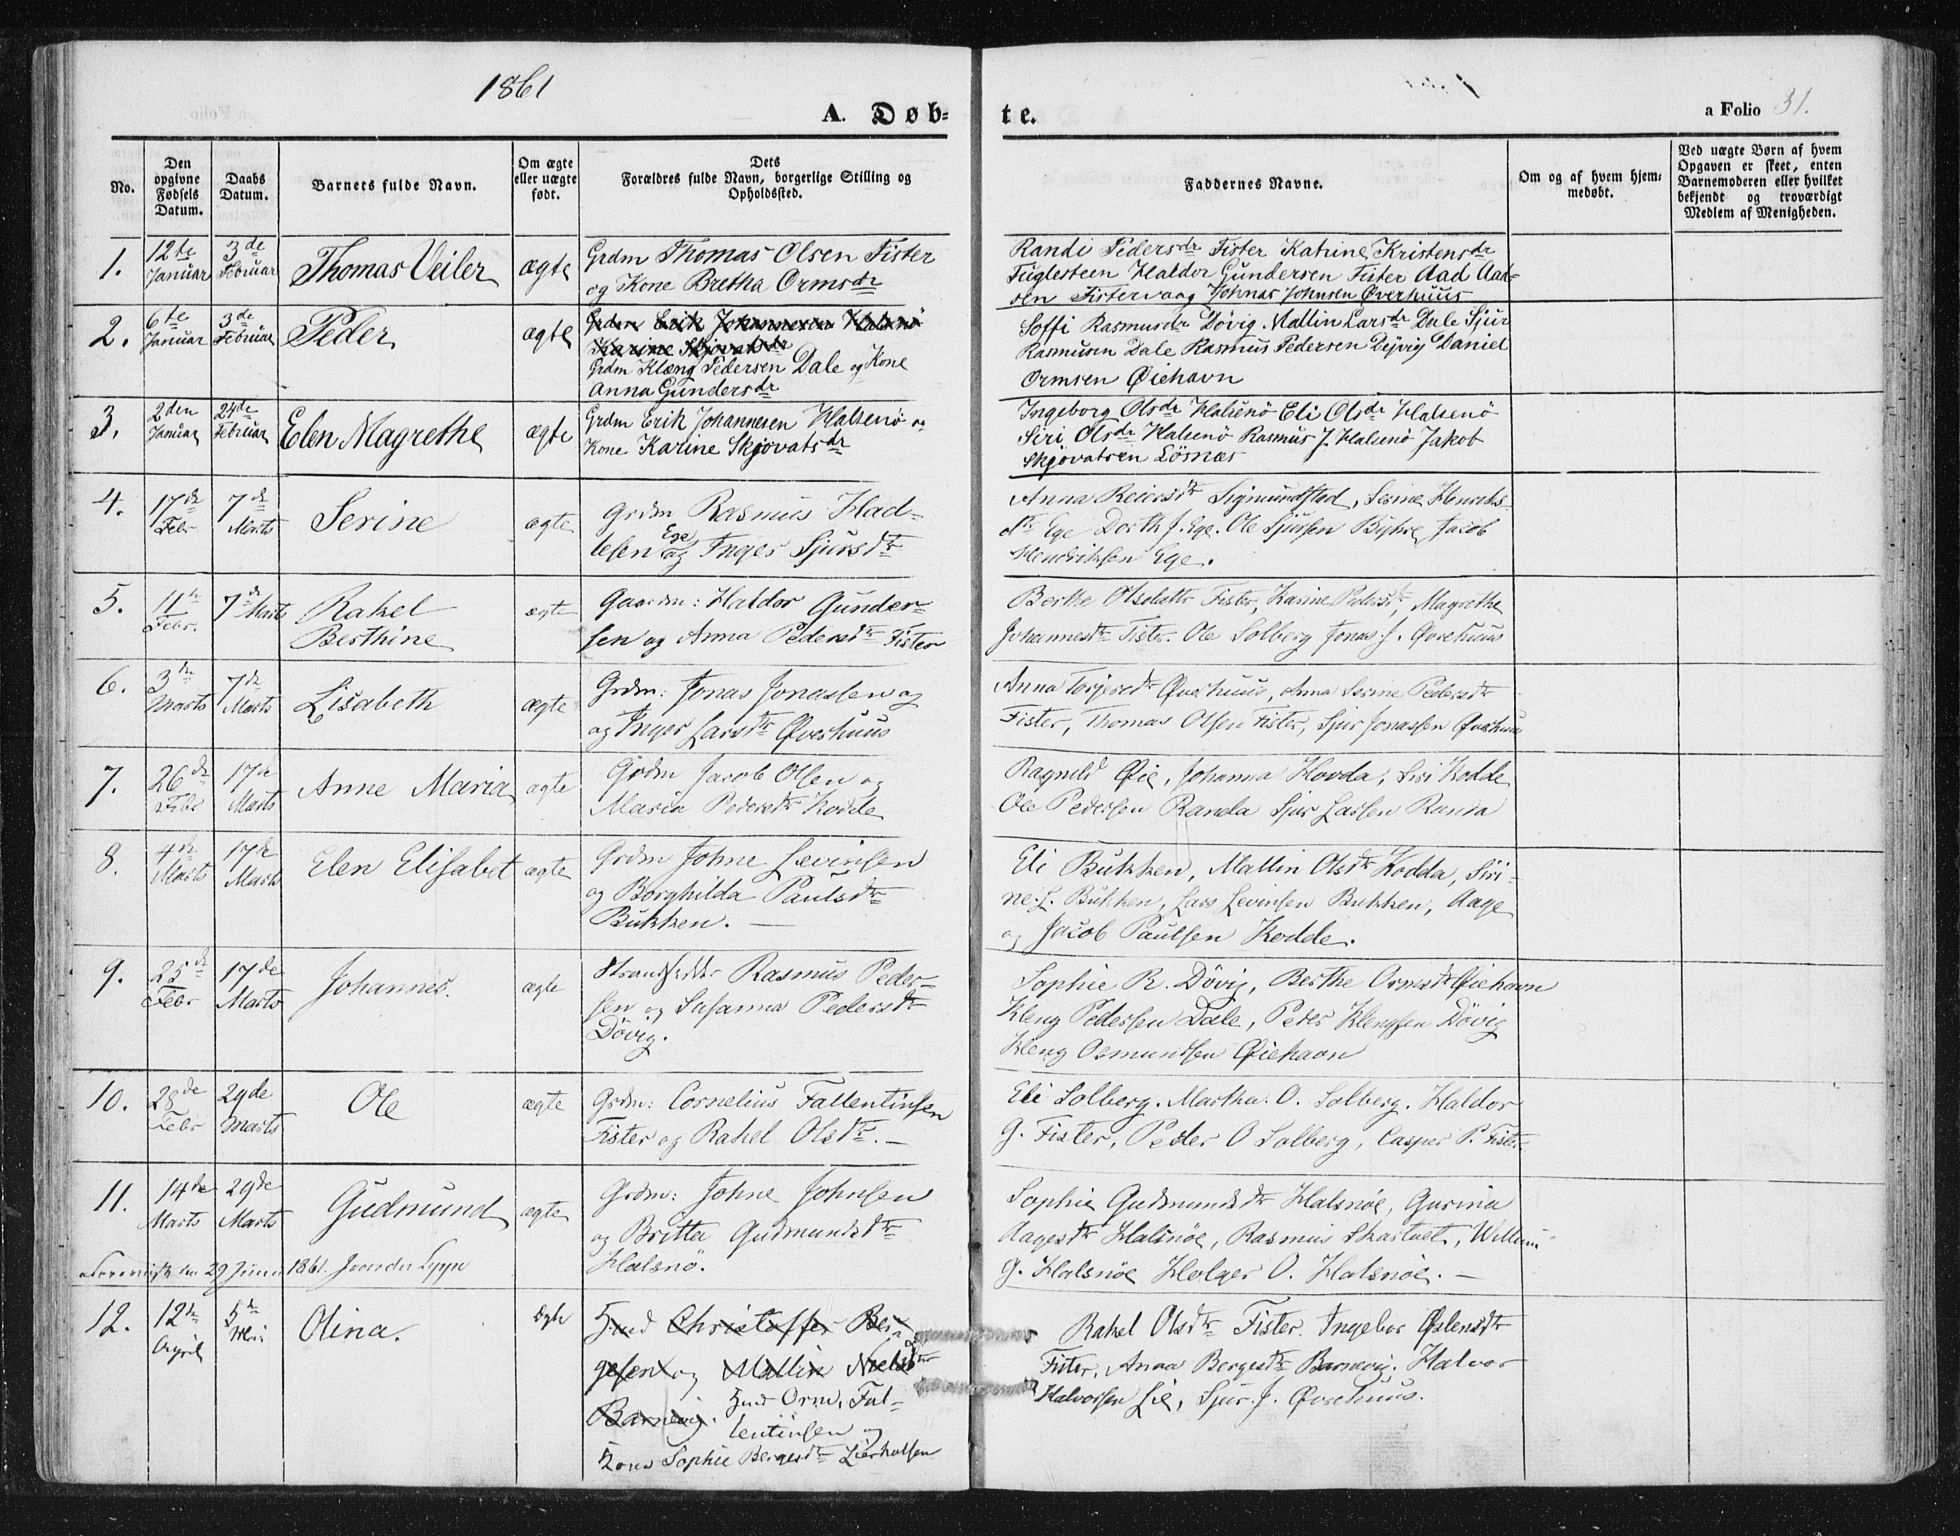 1861
A. Døb-
te.
a Folio 31.
No.
Den opgivne Fødsels Datum.
Daabs Datum.
Barnets fulde Navn.
Om ægte eller uægte født.
Dets Forældres fulde Navn, borgerlige Stilling og Opholdssted.
Faddernes Navne.
Om og af hvem hjem- medøbt.
Ved uægte Børn af hvem Opgaven er skeet, enten Barnemoderen eller hvilket bekjendt og troværdigt Medlem af Menigheden.
1. 12te Januar 3de Februar Thomas Veiler ægte
Grdm Thomas Olsen Fister
og Kone Bretha Ormsdr
Randi Pedersdr Fister Katrine Kristensdr
Fuglesteen Haldor Gundersen Fister Aad Aad-
sen Fistervaag Johnas Johnsen Øverhuus
2. 6te Januar 3de Februar Peder ægte
Grdm Erik Johannesen Halsnø
Karine Skjovatsdr
Grdm Klæng Pedersen Dale og Kone
Anna Gundersdr
Soffi Rasmusdr Døvig. Mallin Larsdr Dale Sjur
Rasmusen Dale Rasmus Pedersen Døjvig Daniel
Ormsen Øiehavn
3. 2den Januar 24de Februar Elen Magrethe ægte
Grdm Erik Johannesen Halsenö og
Kone Karine Skjovatsdr
Ingeborg Olsdr Halsenö Eli Olsdr Halsenö
Siri Olsdr Halsenö Rasmus J. Halsenö Jakob
Skjovatsen Lösnæs
4. 17de Febr 7de Marts Serine ægte
Grdm Rasmus Had-
lesen Ege og Inger Sjursdtr
Anna Reiersdtr Sigmundstad, Serine Henriks-
dtr Ege Dorth J. Ege. Ole Sjursen Byhre Jacob
Hendriksen Ege.
5. 11te Febr. 7de Marts Rakel
Berthine ægte
Gaardm: Haldor Gunder-
sen og Anna Pedersdtr Fister
Berthe Olsdatter Fister, Karine Pedersdtr, Magrethe
Johannesdtr Fister. Ole Solberg Jonas J. Øverhuus
6. 3de Marts 7de Marts Lisabeth ægte
Grdm: Jonas Jonassen og
og Inger Larsdtr Øverhuus
Anna Torjersdtr Øverhuus, Anna Serine Pedersdtr
Fister, Thomas Olsen Fister, Sjur Jonassen Øverhuus
7. 26de Febr 17de Marts Anne Maria ægte
Grdm Jacob Olsen og
Maria Pedersdtr Kodde
Ragnild Øie, Johanna Hovda, Siri Kodde
Ole Pedersen Randa Sjur Larsen Randa
8. 4de Marts 17de Marts Elen Elisabet ægte
Grdm Johne Levinsen
og Borghilda Paulsdtr
Bukken.
Eli Bukken, Mallin Olsdtr Kodda, Siri-
ne L. Bukken, Lars Levinsen Bukken, Aage
og Jacob Paulsen Kodde.
9. 25de Febr 17de Marts Johannes. ægte
Strandsidder Rasmus Peder-
sen og Susanna Pedersdtr
Døvig.
Sophie R. Døvig, Berthe Ormsdtr Øiehavn
Kleng Pedersen Dale, Peder Klengsen Døvig
Kleng Osmundsen Øiehavn
10. 28de Febr 29de Marts Ole ægte
Grdm: Cornelius Fallentinsen
Fister og Rakel Olsdtr.
Eli Solberg. Martha. O. Solberg. Haldor
G. Fister, Peder O Solberg, Casper P. Fister
11. 14de Marts 29de Marts Gudmund ægte
Grdm: Johne Johnsen
og Britta Gudmundsdtr
Halsnö.
Sophie Gudmundsdtr Halsnöe, Gurina
Aagesdtr Halsnöe, Rasmus Skartvet, Willum
G. Halsnöe Holger O. Halsnöe.
29 Juni 1861.
12. 12te April 5te Mai Olina. ægte
Hmd Christoffer Bei-
gesen og Mallin Nielsdtr
Barnevig. Hmd Orm Fal-
lentinsen og
Kone Sophie Bergesdtr
Rakel Olsdtr Fister. Ingebor Østensdtr
Fister, Anna Bergesdtr Barnevig. Halvor
Halvorsen Lie, Sjur. J. Øverhuus.